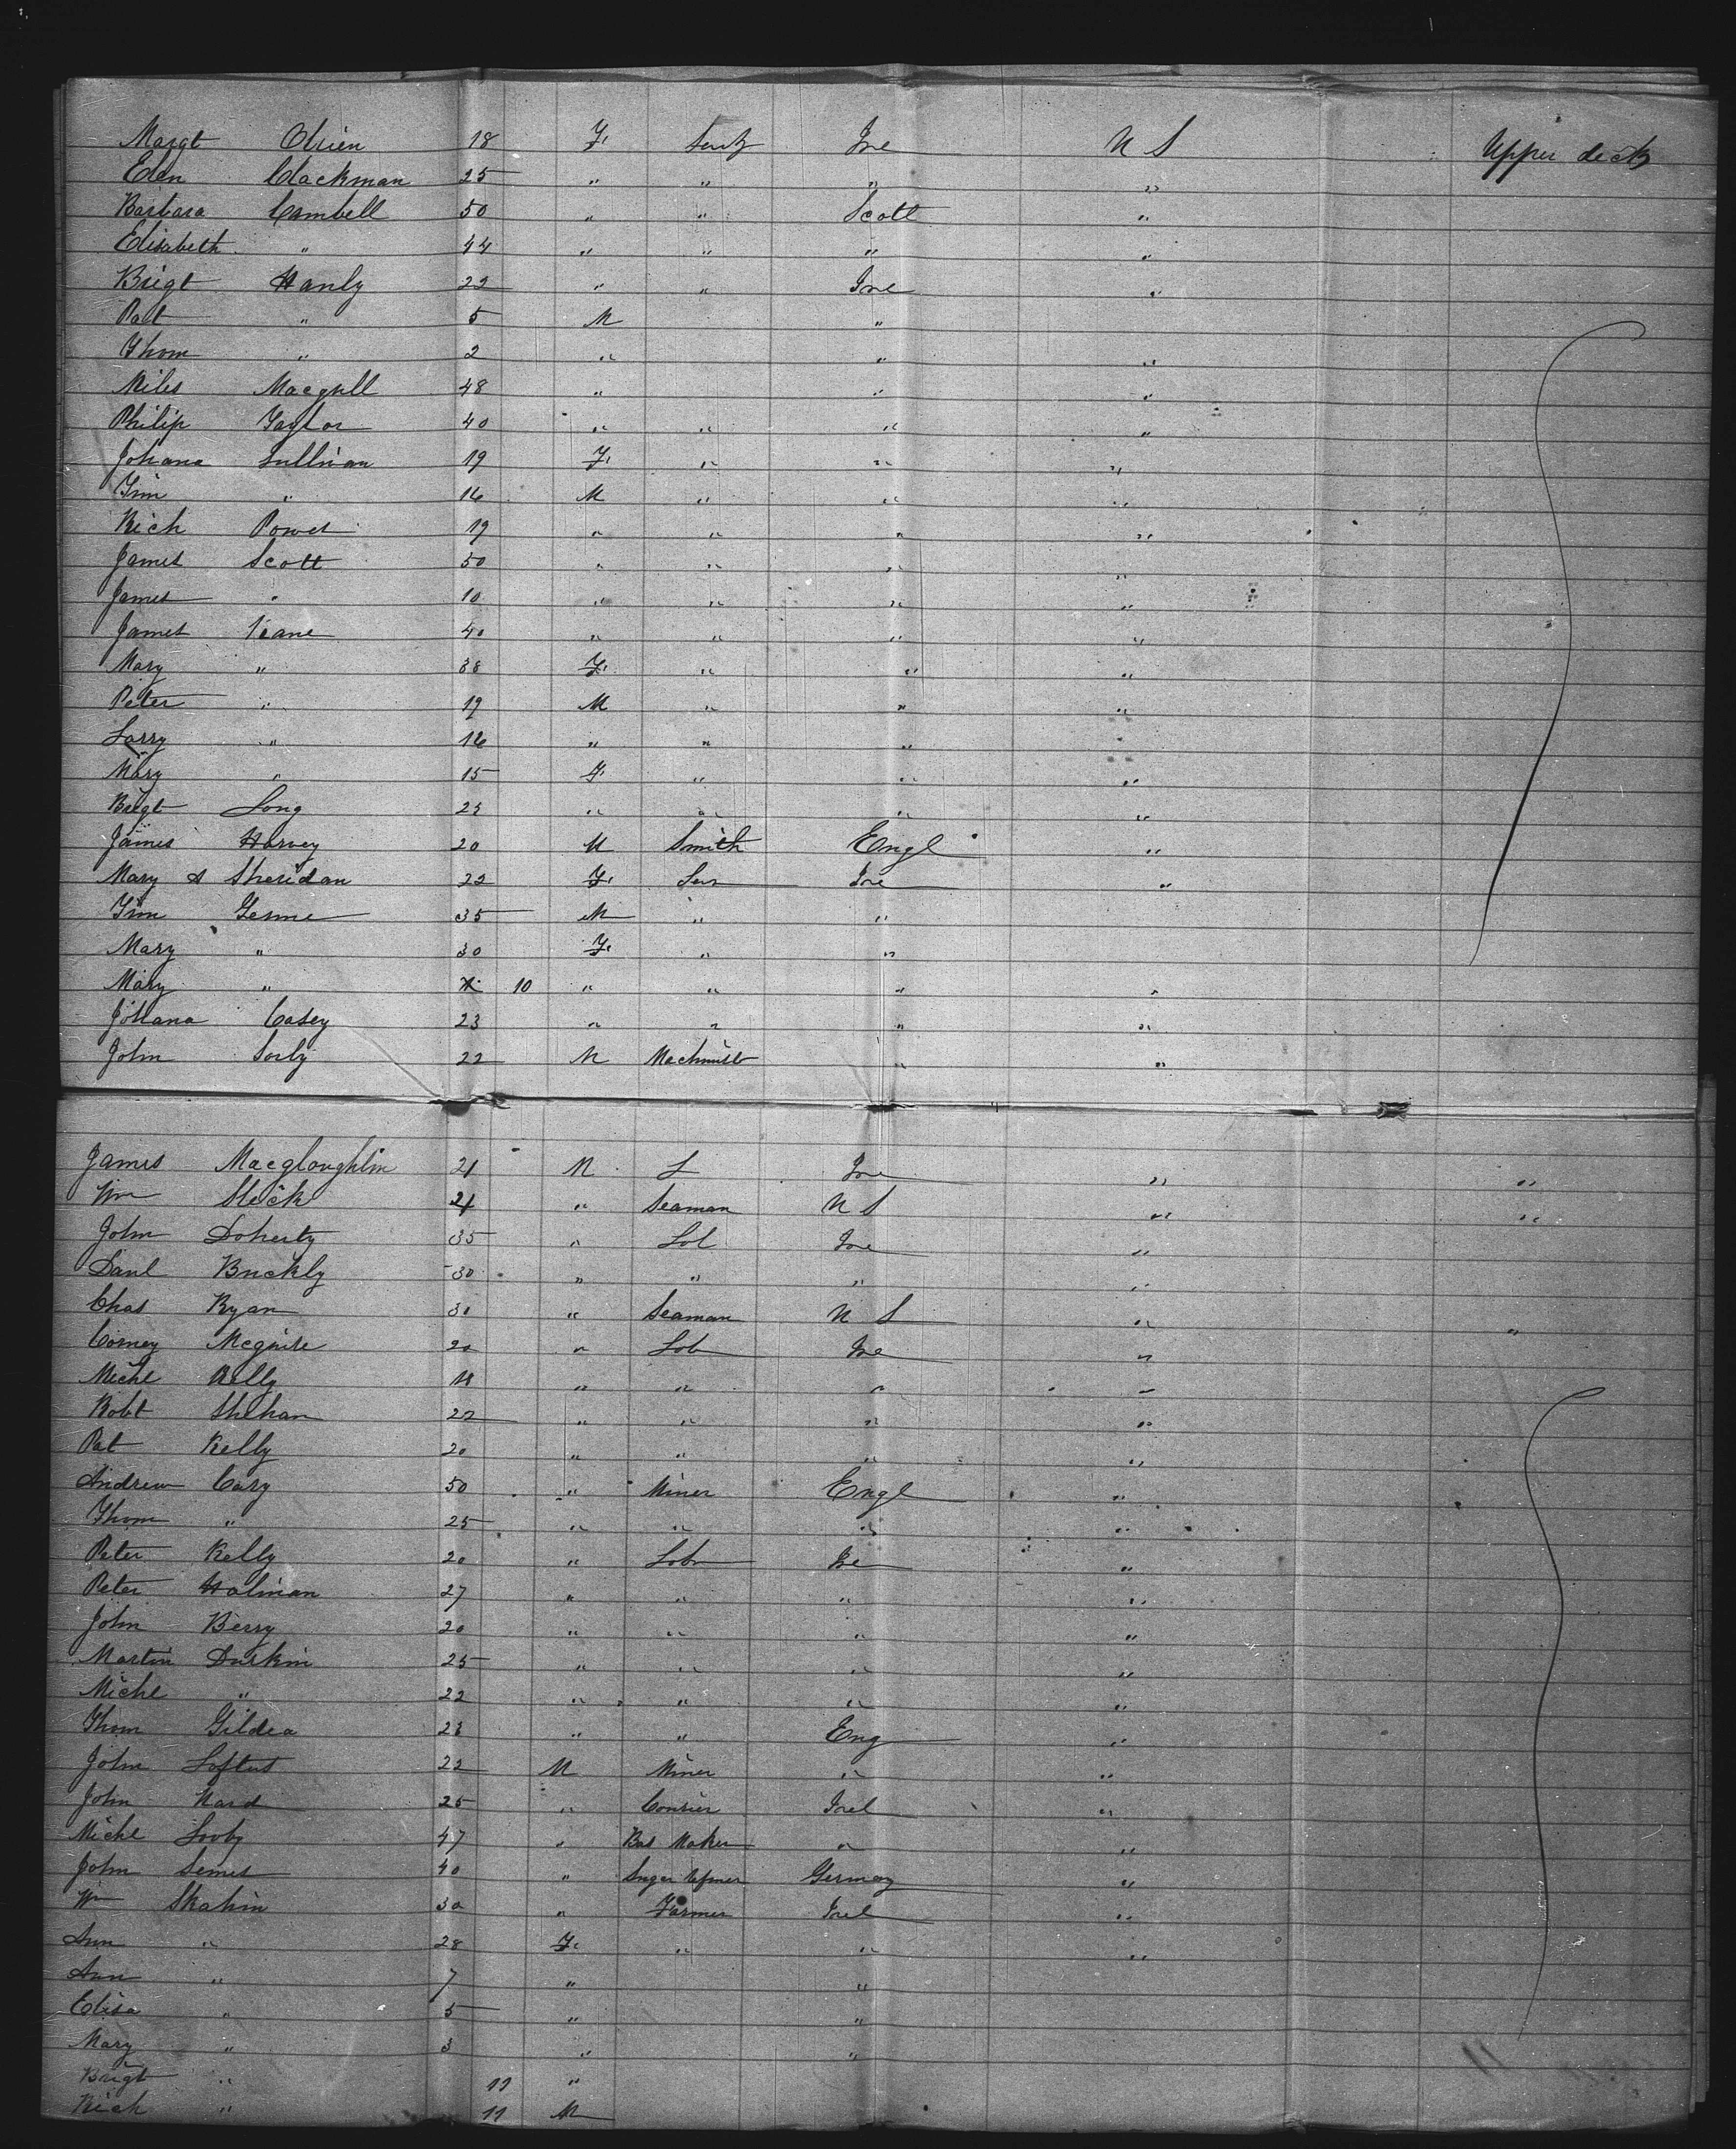 Margt Obrien 18 F. Servt Ire U S Upper deck
Elen Clackman 25 " " " "
Barbara Cambell 50 " " Scott "
Elisabeth " 44 " " " "
Brigt Hanly 22 " " Ire "
Pat " 5 M "
Thom " 2 " " "
Miles Macgill 48 " " "
Philip Taylor 40 " " " "
Johana Sullivan 19 F. " " "
Tim " 16 M " " "
Rich Power 19 " " " "
James Scott 50 " " " "
James " 10 " " " "
James Kane 40 " " " "
Mary " 38 F. " " "
Peter " 19 M " " "
Larry " 16 " " " "
Mary " 15 F. " " "
Brigt Long 25 " " " "
James Harvey 20 M Smith Engl "
Mary A Sheridan 22 F. Ser Ire "
Tim 35 M " "
Mary " 30 F. " "
Mary " 10 " " " "
Johana Casey 23 " " " "
John 22 M Machinist " "
James Macgloughlin 21 M L Ire " "
Wm Sleck 24 " Seaman U S " "
John Doherty 35 " Lab Ire "
Danl Buckly 30 " " " "
Chas Ryan 30 " Seaman U S " "
Corney Mcguire 20 " Lab Ire "
Michl Kelly 18 " " " "
Robt Shehan 22 " " " "
Pat Kelly 20 " " " "
Andrew Cary 50 " Miner Engl "
Thom " 25 " " " "
Peter Kelly 20 " Labr Ire "
Peter Halman 27 " " " "
John Berry 20 " " " "
Martin Durkin 25 " " " "
Michl " 22 " " " "
Thom Gildea 23 " " Eng "
John Loftus 22 M Miner " "
John Ward 25 " Irel "
Michl Looby 47 " Maker " "
John Semes 40 " Sugar refiner Germay "
Wm Skahin 30 " Farmer Irel "
Ann " 28 F. " " "
Ann " 7 " "
Elisa " 5 " "
Mary " 3 " "
Brigt " 11 "
Rich " 11 M